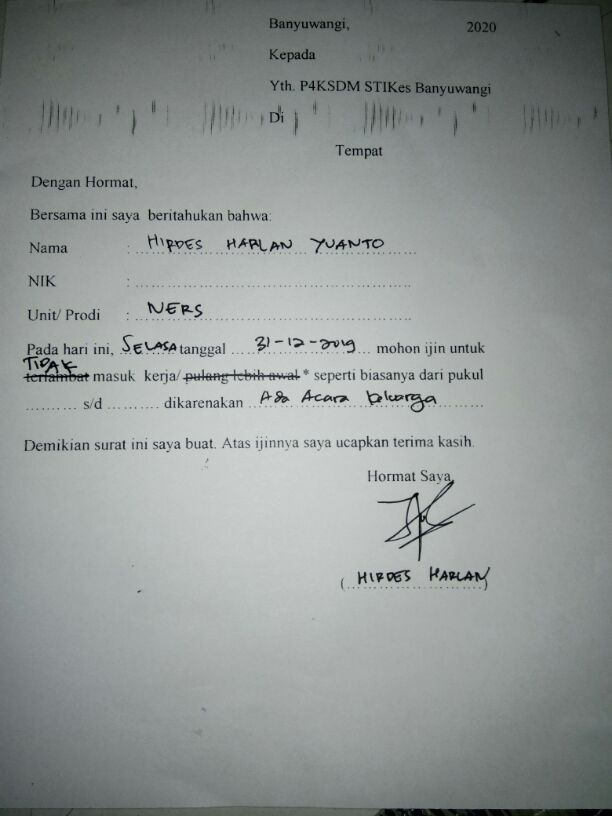 Banyuwangi, 2020
Kepada
Yth. P4KSDM STIKes Banyuwangi
Di
Tempat
Dengan Hormat,
Bersama ini saya beritahukan bahwa:
Nama : HIRDES HARLAN YUANTO
NIK : ........................................
Unit/ Prodi : NERS
Pada hari ini, SELASA tanggal 31-12-2019 mohon ijin untuk
TIDAK
terlambat masuk kerja/ pulang lebih awal * seperti biasanya dari pukul
.......... s/d .......... dikarenakan Ada Acara keluarga
Demikian surat ini saya buat. Atas ijinnya saya ucapkan terima kasih.
Hormat Saya
(HIRDES HARLAN)